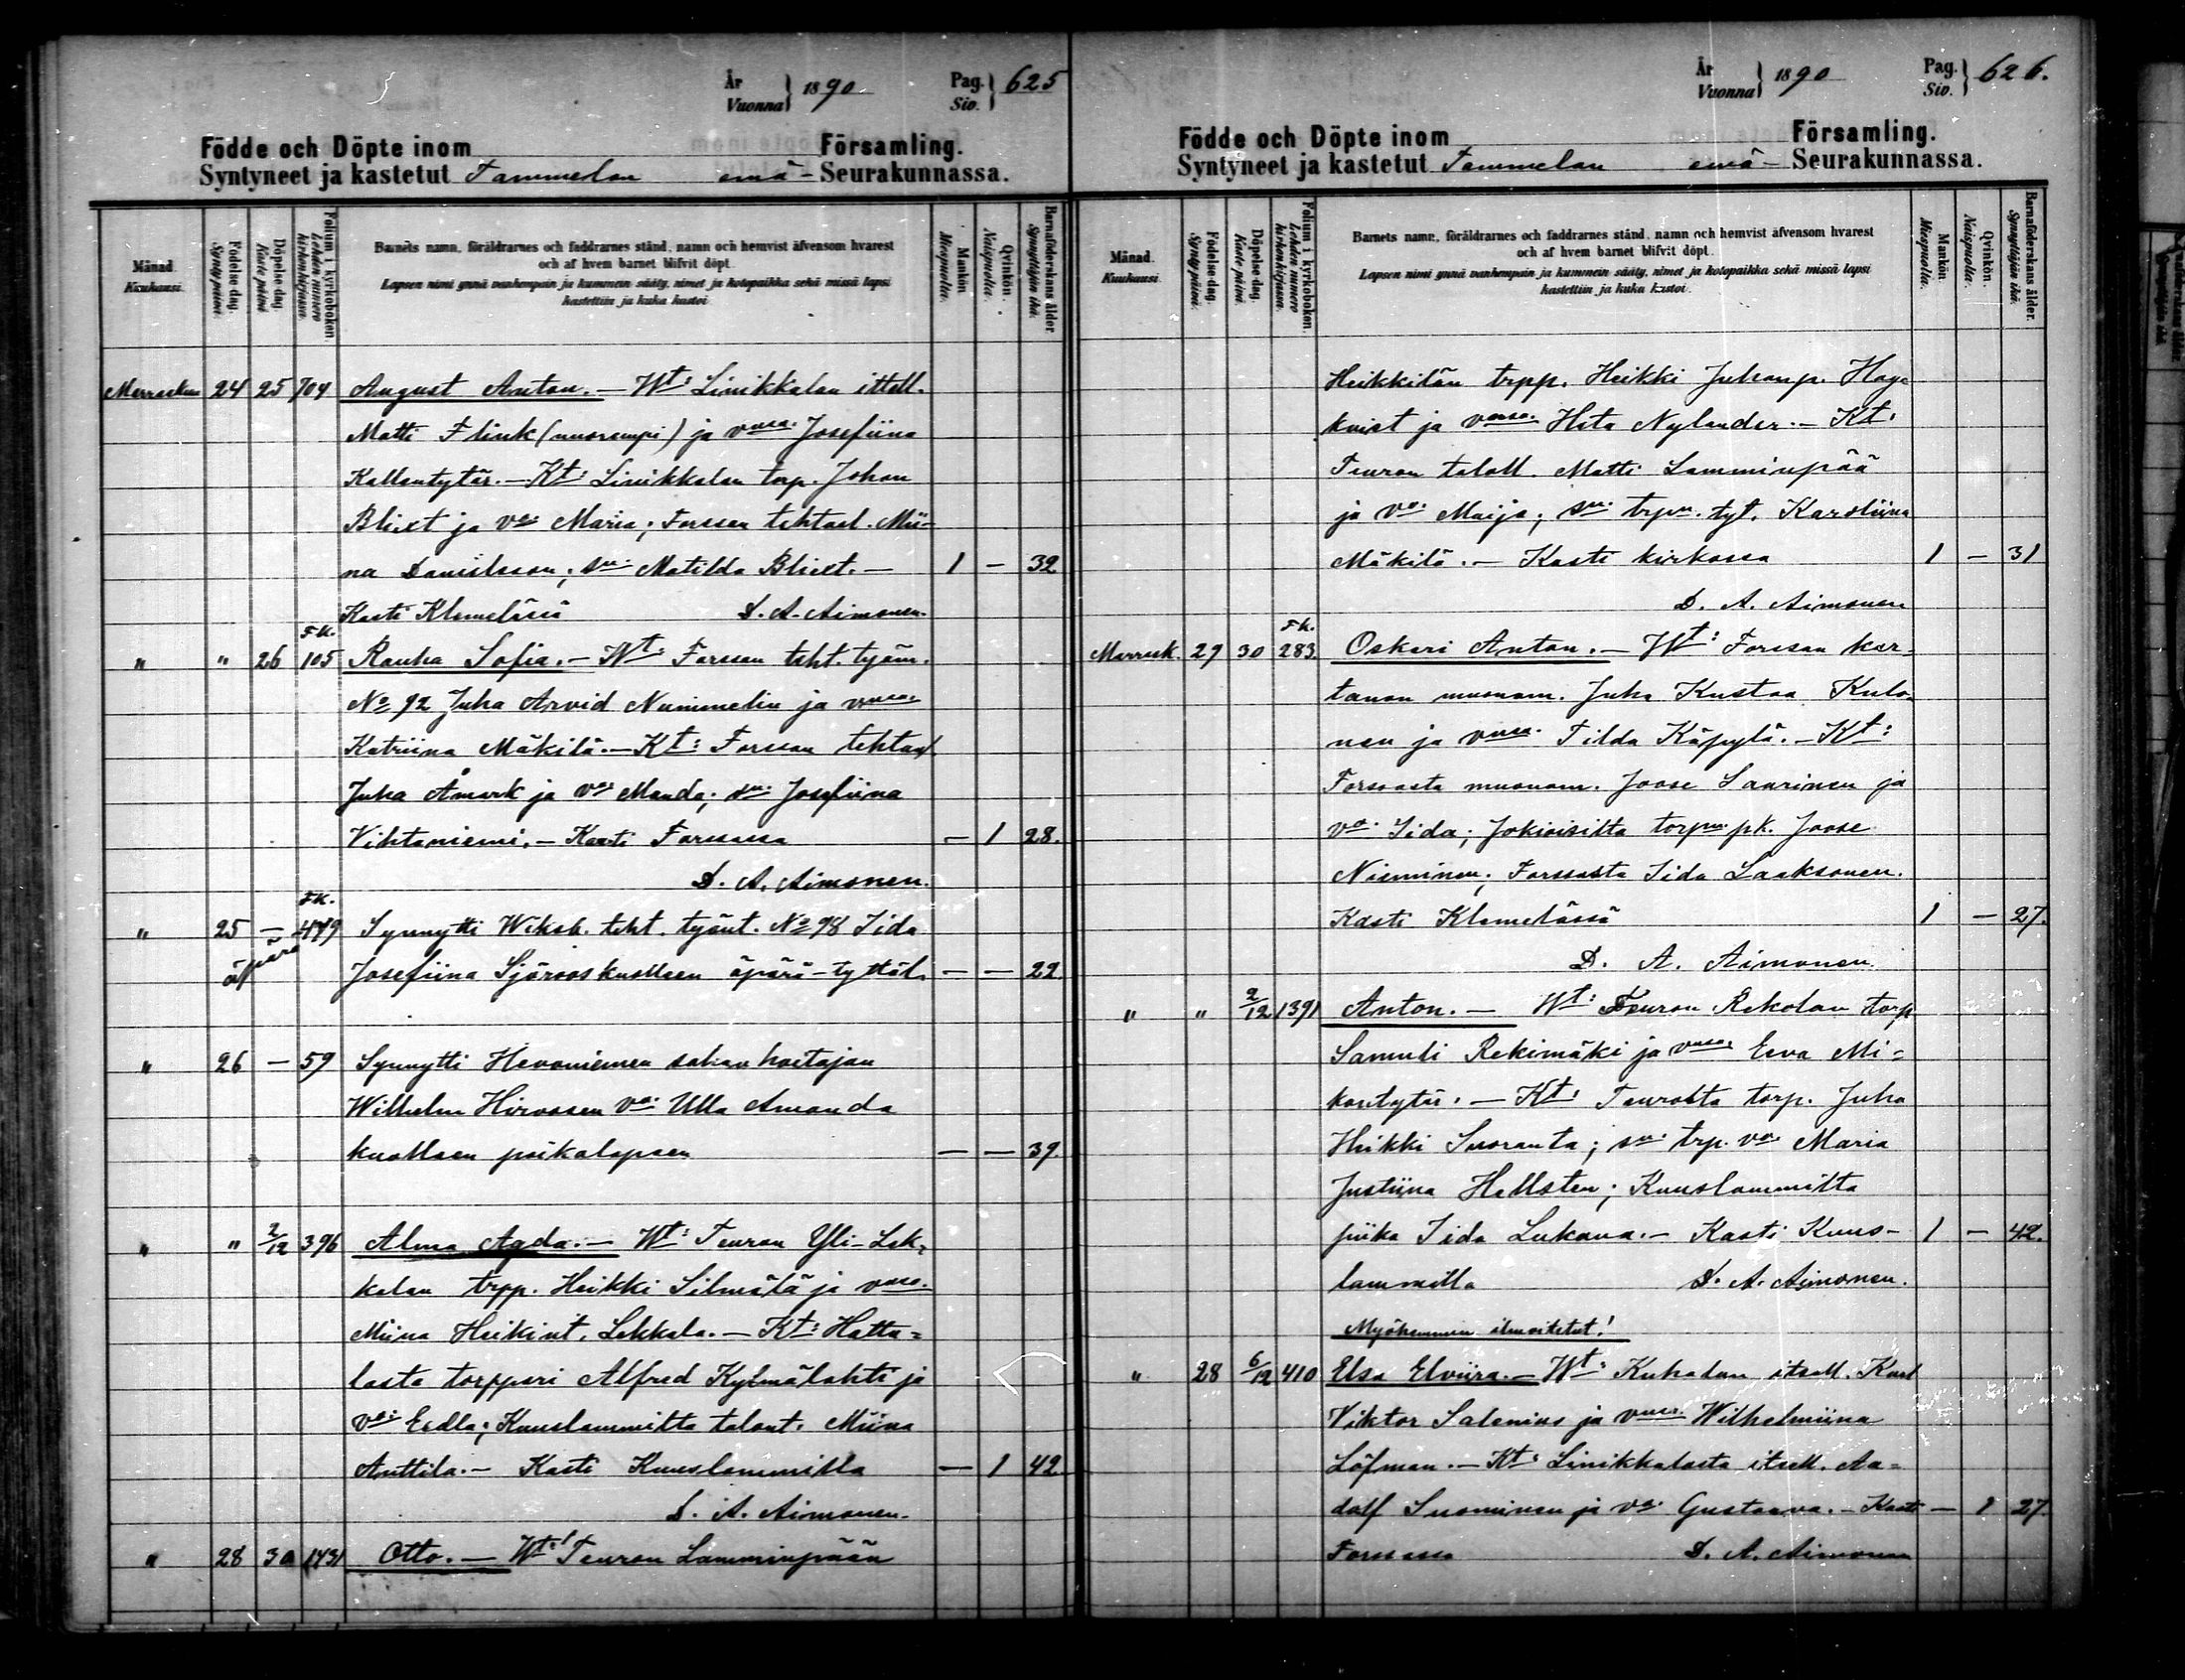 År
Vuonna } 1890
Pag.
Siv. } 625
Födde och Döpte inom Församling.
Syntyneet ja kastetut Tammelan emä- Seurakunnassa.
Månad. Kuukausi.
Födelse dag. Synty päivä.
Döpelse dag. Kaste päivä.
Folium i kyrkoboken. Lehden numero kirkonkirjassa.
Barnets namn, föräldrarnes och faddrarnes stånd, namn och hemvist äfvensom hvarest
och af hvem barnet blifvit döpt.
Lapsen nimi ynnä vanhempain ja kummein sääty, nimet ja kotopaikka sekä missä lapsi
kastettiin ja kuka kastoi.
Mankön. Miespuolta.
Qvinkön. Naispuolta.
Barnaföderskans ålder. Synnyttäjän ikä.
Marraskuu 24 25 704 August Anton. — Wt: Linikkalan ittell.
Matti Flink (nuorempi) ja vmsa. Josefiina
Kallentytär. — Kt: Linikkalan torp. Johan
Blixt ja vo: Maria; Forssan tehtaal. Mii-
na Danielsson; su: Matilda Blixt. — 1 — 32
Kasti Klemelässä D. A. Aimonen.
FK.
" " 26 105 Rauha Sofia. — Wt: Forssan teht. työm.
No 92 Juha Arvid Nummelin ja vmsa.
Katriina Mäkilä. — Kt: Forssan tehtaal
Juha Åmark ja vo: Manda; su: Josefiina
Vihtaniemi. — Kasti Forssassa — 1 28.
D. A. Aimonen.
FK.
" 25 — 479 Synnytti Wiksb. teht. työnt. No 98 Iida
äpärä Josefiina Sjöroos kuolleen äpärä-tyttöl. — — 22
" 26 — 59 Synnytti Hevoniemen sahan hoitajan
Wilhelm Hirvosen vo: Ulla Amanda
kuolleen poikalapsen — — 39.
" " 2/12 396 Alma Agda. — Wt: Teuron Yli-Lek-
kalan trpp. Heikki Silmälä ja vmsa.
Miina Heikint. Lekkala. — Kt: Hatta-
lasta torppari Alfred Kylmälahti ja
vo: Eedla; Kuuslammilta talont. Miina
Anttila. — Kasti Kuuslammilla — 1 42
D. A. Aimonen.
" 28 30 1431 Otto. — Wt: Teuron Lamminpään
År
Vuonna } 1890
Pag.
Siv. } 626.
Födde och Döpte inom Församling.
Syntyneet ja kastetut Tammelan emä- Seurakunnassa.
Månad. Kuukausi.
Födelse dag. Synty päivä.
Döpelse dag. Kaste päivä.
Folium i kyrkoboken. Lehden numero kirkonkirjassa.
Barnets namn, föräldrarnes och faddrarnes stånd, namn och hemvist äfvensom hvarest
och af hvem barnet blifvit döpt.
Lapsen nimi ynnä vanhempain ja kummein sääty, nimet ja kotopaikka sekä missä lapsi
kastettiin ja kuka kastoi.
Mankön. Miespuolta.
Qvinkön. Naispuolta.
Barnaföderskans ålder. Synnyttäjän ikä.
Heikkilän trpp. Heikki Juhanp. Hag-
kvist ja vmsa. Heta Nylander. — Kt:
Teuron taloll. Matti Lamminpää
ja vo. Maija; su: trpn. tyt. Karoliina
Mäkilä. — Kasti kirkossa 1 — 31
D. A. Aimonen
FK.
Marrask. 29 30 283 Oskari Anton. — Wt: Forssan kar-
tanon muonam. Juha Kustaa Kulo-
nen ja vmsa. Tilda Käpylä. — Kt:
Forssasta muonam. Joose Saarinen ja
vo. Iida; Jokioisilta torpn. pk. Joose
Nieminen; Forssasta Iida Laaksonen.
Kasti Klemelässä 1 — 27.
D. A. Aimonen.
" " 2/12 1391 Anton. — Wt: Teuron Rekolan torp
Samuli Rekimäki ja vmsa. Eeva Mi-
kontytär. — Kt: Teurolta torp. Juha
Heikki Suoranta; su: trp. vo: Maria
Justiina Hellsten; Kuuslammilta
piika Iida Lukana. — Kasti Kuus- 1 — 42.
lammilla D. A. Aimonen.
Myöhemmin ilmoitetut!
" 28 6/12 410 Elsa Elviira. — Wt: Kuhalan itsell. Karl
Viktor Salenius ja vmsa. Wilhelmiina
Löfman. — Kt: Linikkalasta itsell. Aa-
dolf Suominen ja vo. Gustaava. — Kasti — 1 27.
Forssassa D. A. Aimonen